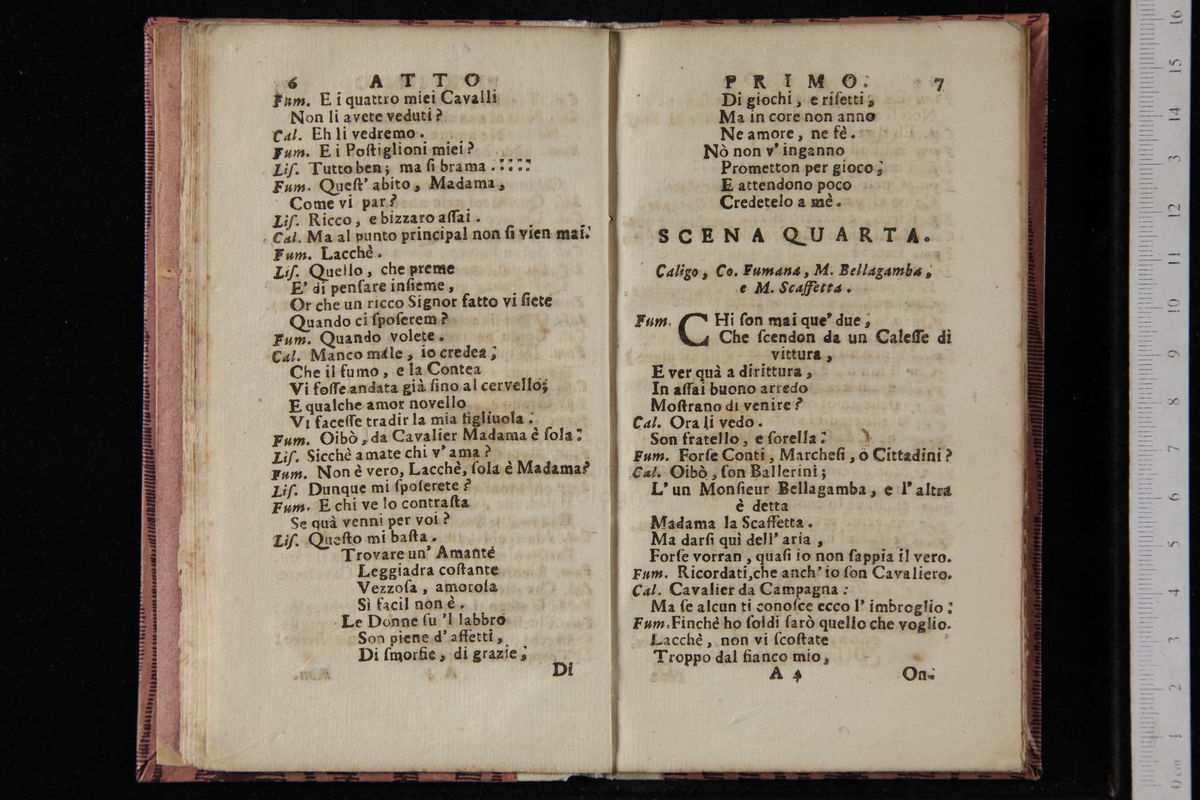 6 ATTO
Fum. E i quattro miei Cavalli
Non li avete veduti?
Cal. Eh li vedremo.
Fum. E i Poſtiglioni miei?
Liſ. Tutto ben; ma ſi brama.::::
Fum. Queſt' abito, Madama,
Come vi par?
Liſ. Ricco, e bizzaro aſſai.
Cal. Ma al punto principal non ſi vien mai.
Fum. Lacchè.
Liſ. Quello, che preme
E' di penſare inſieme,
Or che un ricco Signor fatto vi ſiete
Quando ci ſpoſerem?
Fum. Quando volete.
Cal. Manco male, io credea;
Che il fumo, e la Contea
Vi foſſe andata già ſino al cervello;
E qualche amor novello
Vi faceſſe tradir la mia figliuola.
Fum. Oibò, da Cavalier Madama è ſola.
Liſ. Sicchè amate chi v' ama?
Fum. Non è vero, Lacchè, ſola è Madama?
Liſ. Dunque mi ſpoſerete?
Fum. E chi ve lo contraſta
Se quà venni per voi?
Liſ. Queſto mi baſta.
Trovare un' Amante
Leggiadra coſtante
Vezzoſa, amoroſa
Sì facil non è.
Le Donne ſu 'l labbro
Son piene d' affetti,
Di ſmorfie, di grazie;
Di
PRIMO. 7
Di giochi, e riſetti,
Ma in core non anno
Ne amore, ne fè.
Nò non v' inganno
Prometton per gioco;
E attendono poco
Credetelo a mè.
SCENA QUARTA.
Caligo, Co. Fumana, M. Bellagamba,
e M. Scaffetta.
Fum. CHi ſon mai que' due,
Che ſcendon da un Caleſſe di
vittura,
E ver quà a dirittura,
In aſſai buono arredo
Moſtrano di venire?
Cal. Ora li vedo.
Son fratello, e ſorella.
Fum. Forſe Conti, Marcheſi, o Cittadini?
Cal. Oibò, ſon Ballerini;
L' un Monſieur Bellagamba, e l' altra
è detta
Madama la Scaffetta.
Ma darſi quì dell' aria,
Forſe vorran, quaſi io non ſappia il vero.
Fum. Ricordati, che anch' io ſon Cavaliero.
Cal. Cavalier da Campagna:
Ma ſe alcun ti conoſce ecco l' imbroglio.
Fum. Finchè ho ſoldi ſarò quello che voglio.
Lacchè, non vi ſcoſtate
Troppo dal fianco mio,
A 4 On-
0 cm 1 2 3 4 5 6 7 8 9 10 11 12 13 14 15 16